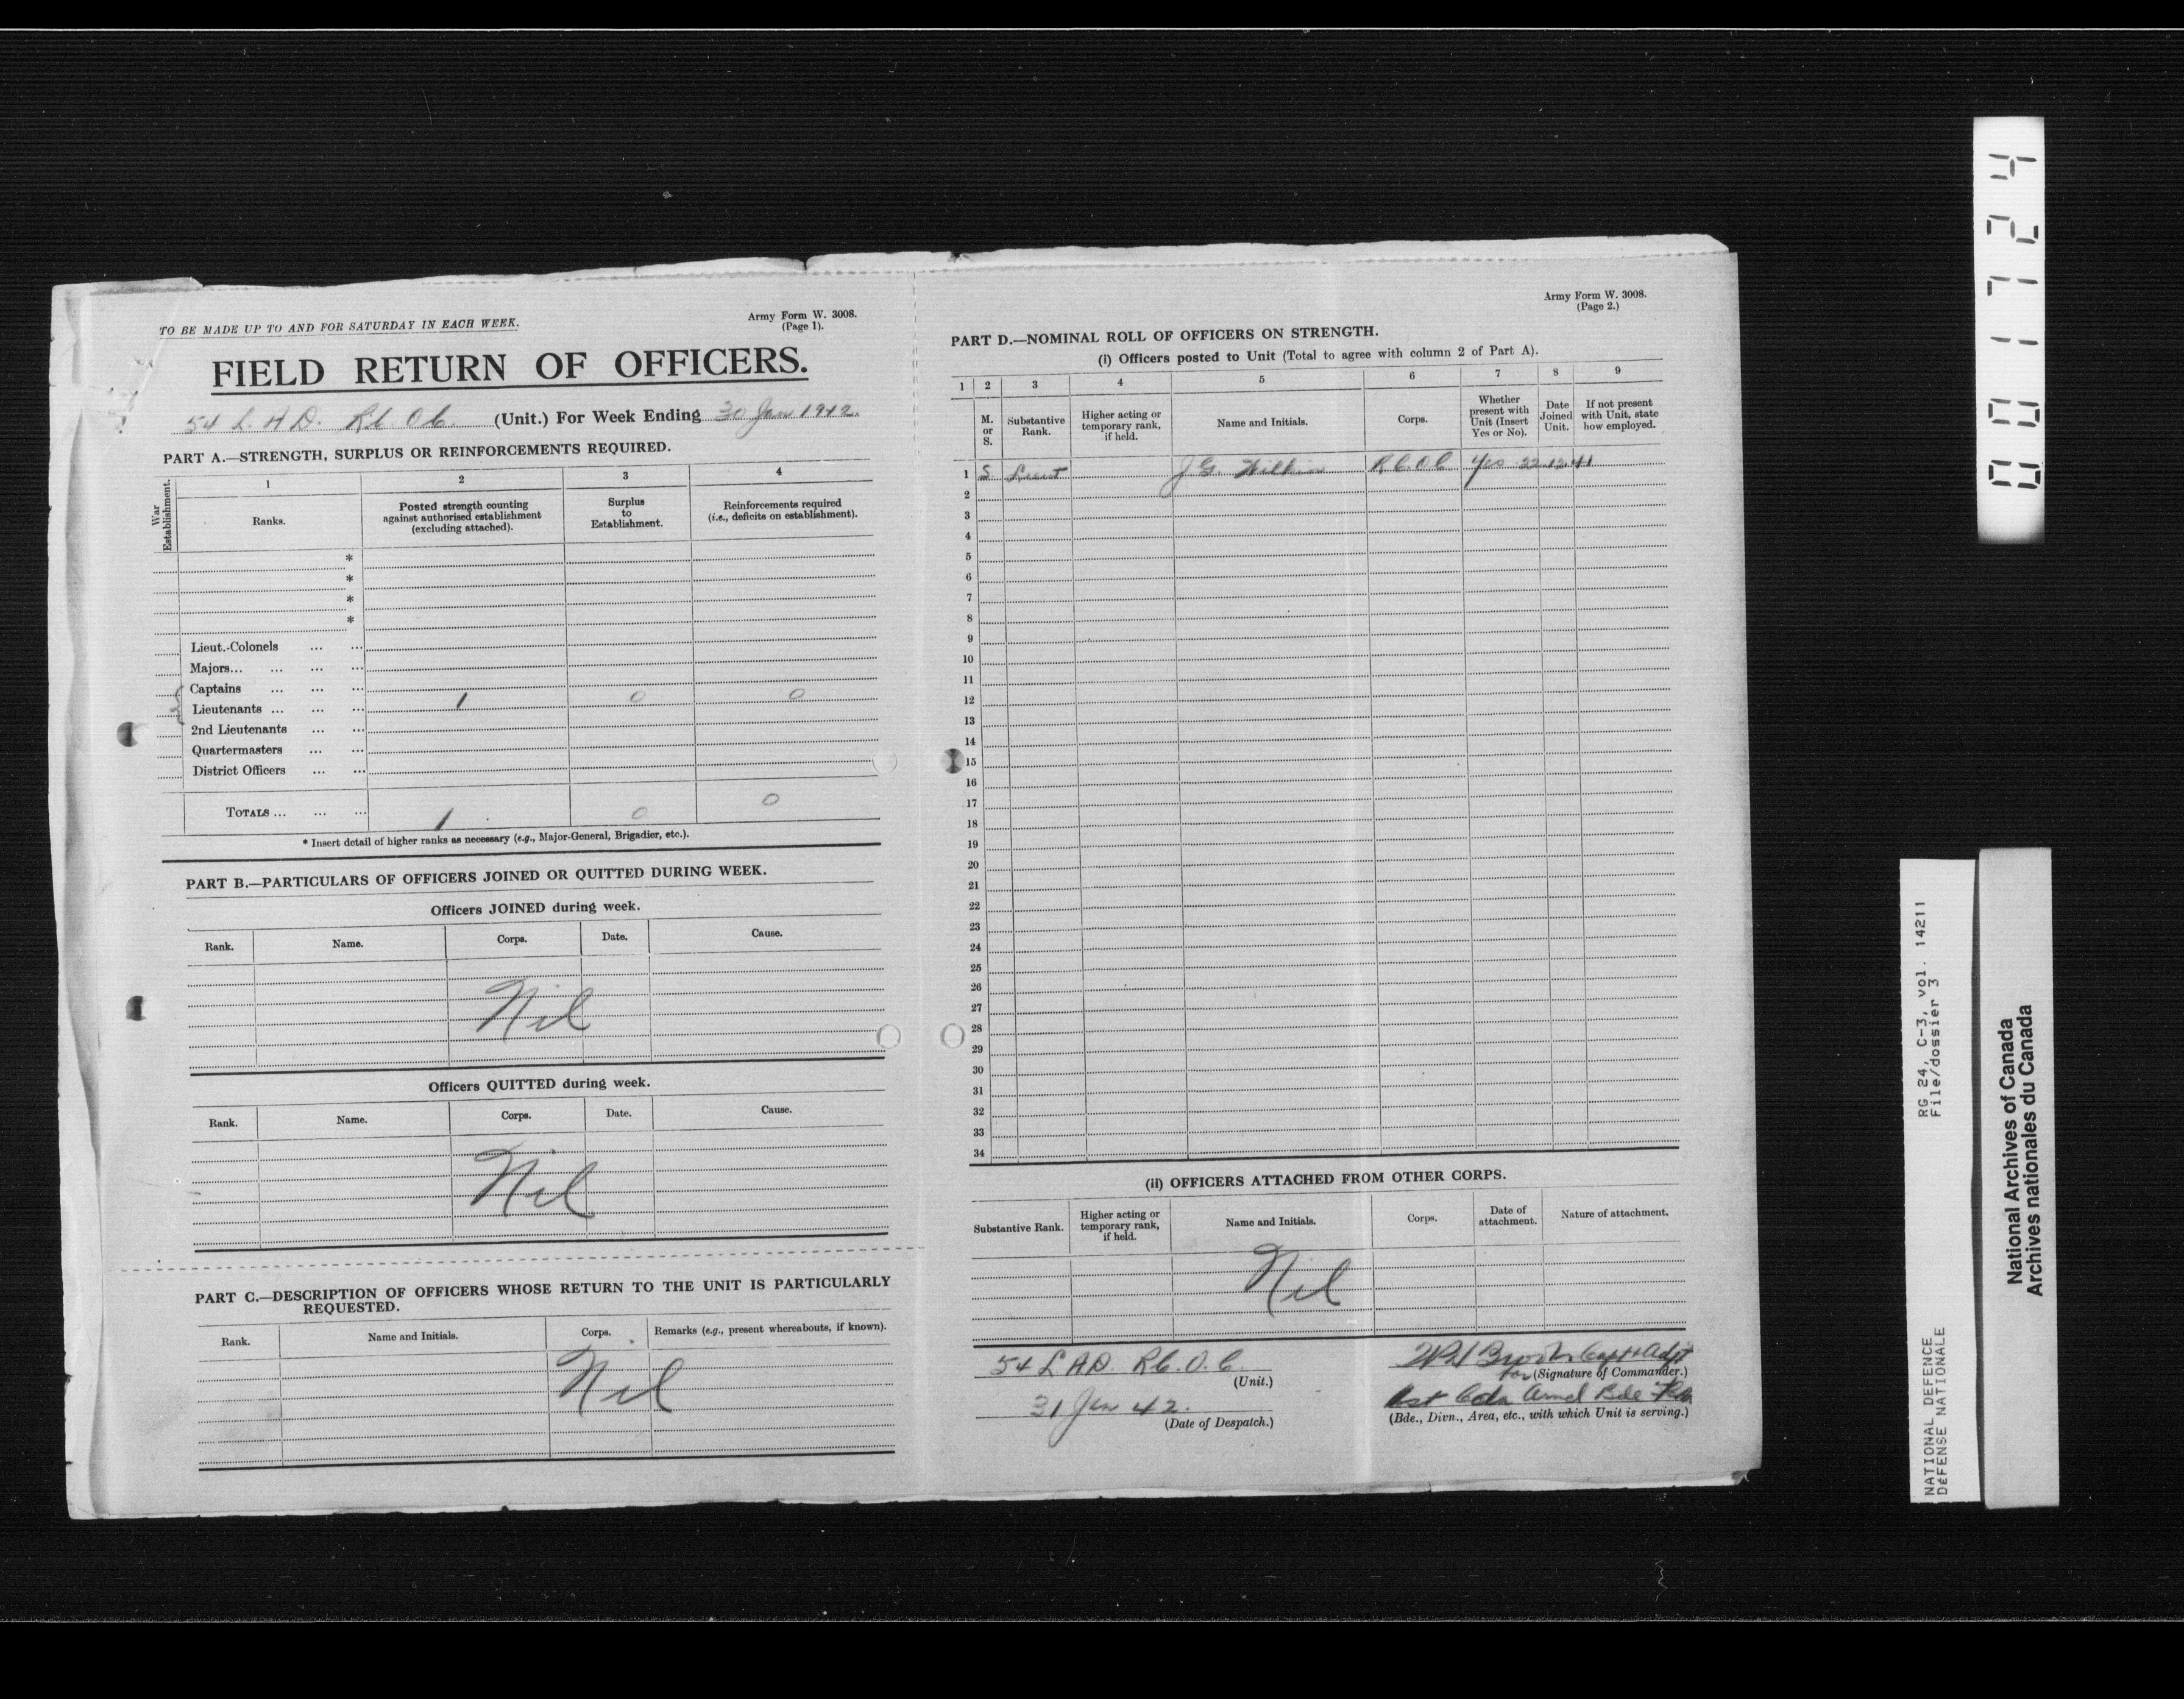 TO BE MADE UP TO AND FOR SATURDAY IN EACH WEEK.
Army Form W. 3008.
(Page 1).
FIELD RETURN OF OFFICERS.
54 L. A. D. R.C.O.C. (Unit.) For Week Ending 30 Jan 1942.
PART A.—STRENGTH, SURPLUS OR REINFORCEMENTS REQUIRED.
War Establishment.
1 2 3 4
Ranks.
Posted strength counting against authorised establishment (excluding attached).
Surplus to Establishment.
Reinforcements required (i.e., deficits on establishment).
*
*
*
*
Lieut.-Colonels ... ...
Majors... ... ... ...
Captains ... ... ...
Lieutenants ... ... ... 1 0 0
2nd Lieutenants ...
Quartermasters ... ...
District Officers ... ...
TOTALS ... ... ... 1 0 0
* Insert detail of higher ranks as necessary (e.g., Major-General, Brigadier, etc.).
PART B.—PARTICULARS OF OFFICERS JOINED OR QUITTED DURING WEEK.
Officers JOINED during week.
Rank. Name. Corps. Date. Cause.
Nil
Officers QUITTED during week.
Rank. Name. Corps. Date. Cause.
Nil
PART C.—DESCRIPTION OF OFFICERS WHOSE RETURN TO THE UNIT IS PARTICULARLY
REQUESTED.
Rank. Name and Initials. Corps. Remarks (e.g., present whereabouts, if known).
Nil
Army Form W. 3008.
(Page 2.)
PART D.—NOMINAL ROLL OF OFFICERS ON STRENGTH.
(i) Officers posted to Unit (Total to agree with column 2 of Part A).
1 2 3 4 5 6 7 8 9
M. or S.
Substantive Rank.
Higher acting or temporary rank, if held.
Name and Initials.
Corps.
Whether present with Unit (Insert Yes or No).
Date Joined Unit.
If not present with Unit, state how employed.
1 S Lieut J.G. R.C.O.C Yes 22.12.41
2
3
4
5
6
7
8
9
10
11
12
13
14
15
16
17
18
19
20
21
22
23
24
25
26
27
28
29
30
31
32
33
34
(ii) OFFICERS ATTACHED FROM OTHER CORPS.
Substantive Rank.
Higher acting or temporary rank, if held.
Name and Initials.
Corps.
Date of attachment.
Nature of attachment.
Nil
54 L A D. R.C.O.C.
(Unit.)
31 Jan 42.
(Date of Despatch.)
Capt & Adjt
for (Signature of Commander.)
1st Cdn Armd Bde
(Bde., Divn., Area, etc., with which Unit is serving.)
0001724
RG 24, C-3, vol. 14211
File/dossier 3
NATIONAL DEFENCE
DÉFENSE NATIONALE
National Archives of Canada
Archives nationales du Canada